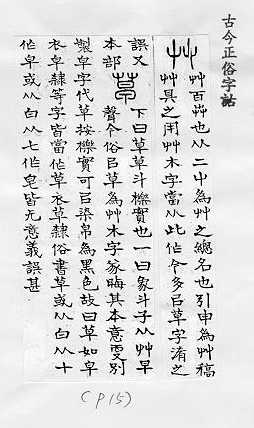 古今正俗字詁
艸 艸百艸也从二屮為艸之總名也引申為艸稿
艸具之用艸木字當从此作今多㠯草字淆之
誤又 草 下曰草草斗櫟實也一曰象斗子从艸早
本部 聲今俗㠯草為艸木字㒸晦其本意叓別
製皁字代草按櫟實可㠯染帛為黑色故曰草如皁
衣皁隸等字皆當作草衣草隸俗書草或从白从十
作皁或从白从七作皂皆无意義誤甚
(P15)